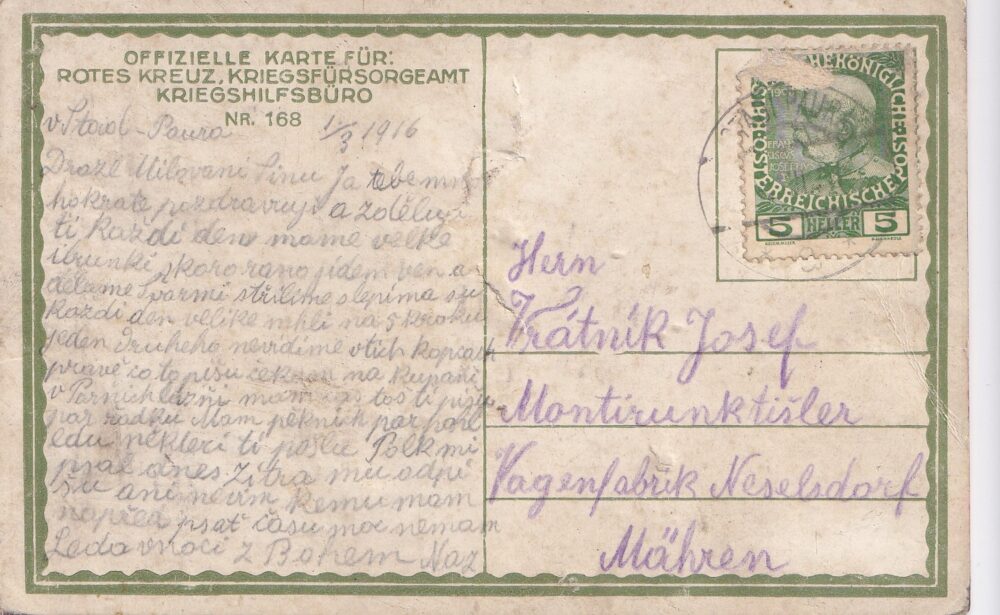 OFFIZIELLE KARTE FÜR:
ROTES KREUZ, KRIEGSFÜRSORGEAMT
KRIEGSHILFSBÜRO
NR. 168
v Stadl-Paura 1/3 1916
Drazí Milovaní Sinu Ja tebe mno
hokrate pozdravuji a zděluji
ti každi den mame velke
skoro rano jidem ven a
děláme střilime slepima su
každi den velike mhli na 5 kroku
jeden druheho nevidime v tich kopcach
pravě co to pišu čekam na kupani
v Parnich lazni mam čas toš ti pišu
par řadku Mam pěknich par pohl
edu nekteri ti pošlu Polk mi
psal dnes Zitra mu odpi
šu ani nevim kemu mam
napřed psat času moc nemam
Leda vnoci z Bohem Naz
KAIS. KÖNIGLICHE ÖSTERREICHISCHE POST
5 HELLER 5
Herrn
Vrátník Josef
Montirunktišler
Vagenfabrik Neselsdorf
Mähren